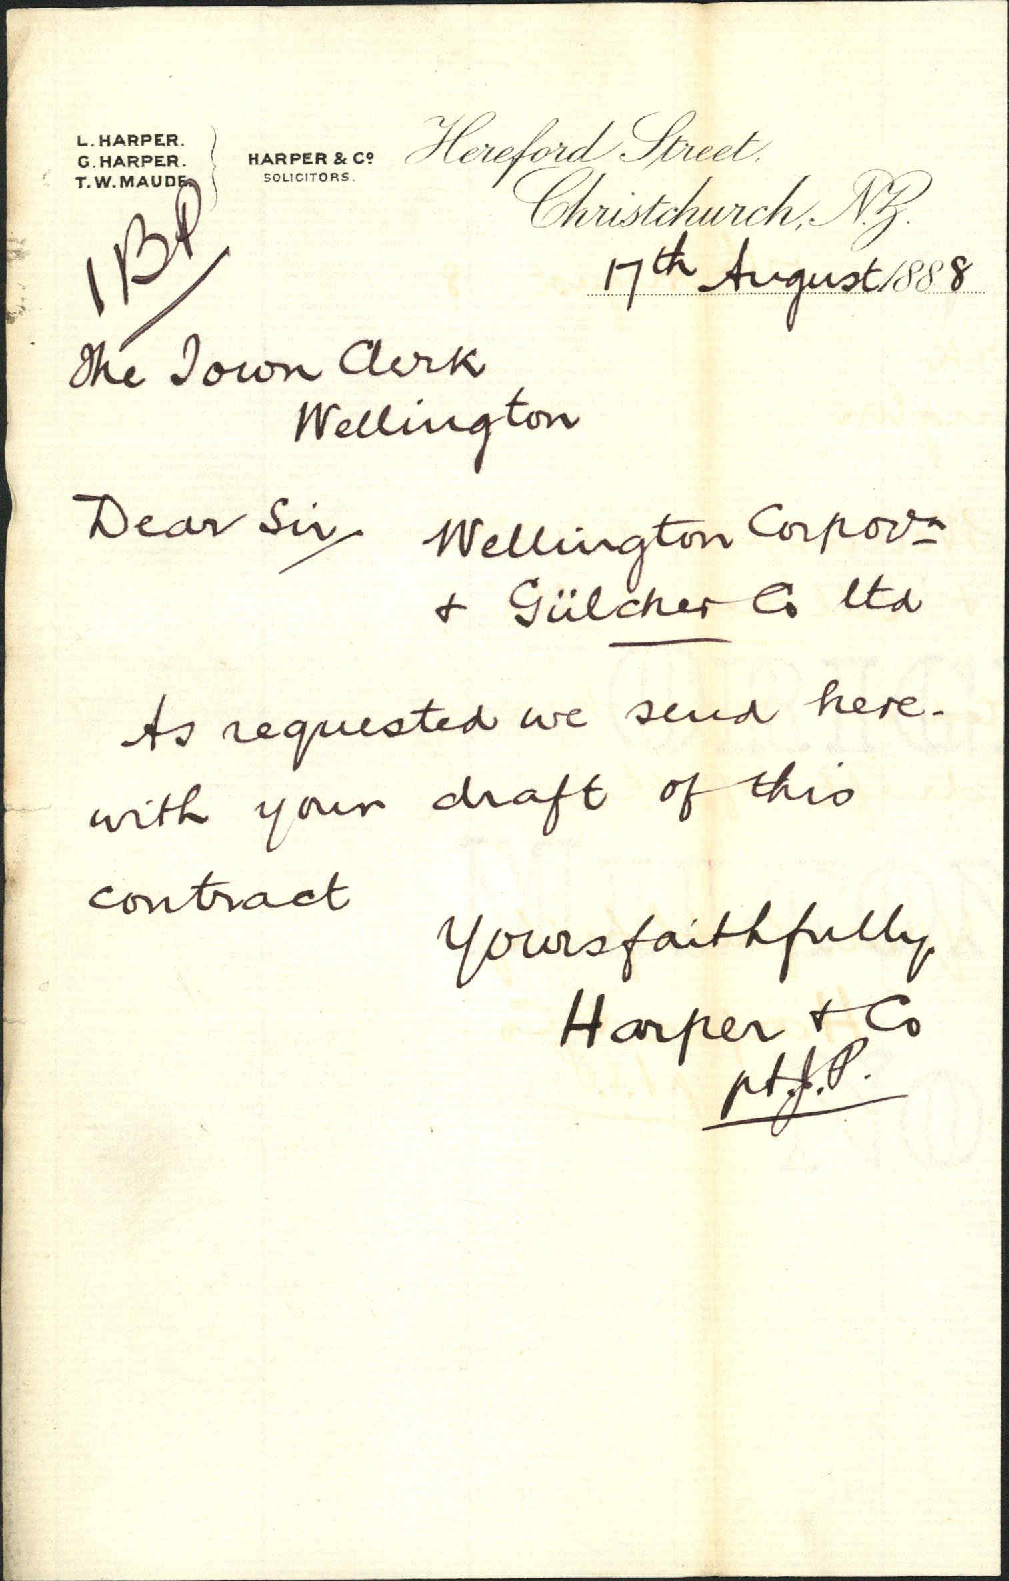 L. HARPER.
G. HARPER.
T. W. MAUDE.
HARPER & Co
SOLICITORS.
Hereford Street.
Christchurch, N.Z.
17th August 1888
1 BP
The Town Clerk
Wellington
Dear Sir
Wellington Corporn
& Gülcher Co Ltd
As requested we send here-
with your draft of this
contract
Yours faithfully,
Harper & Co